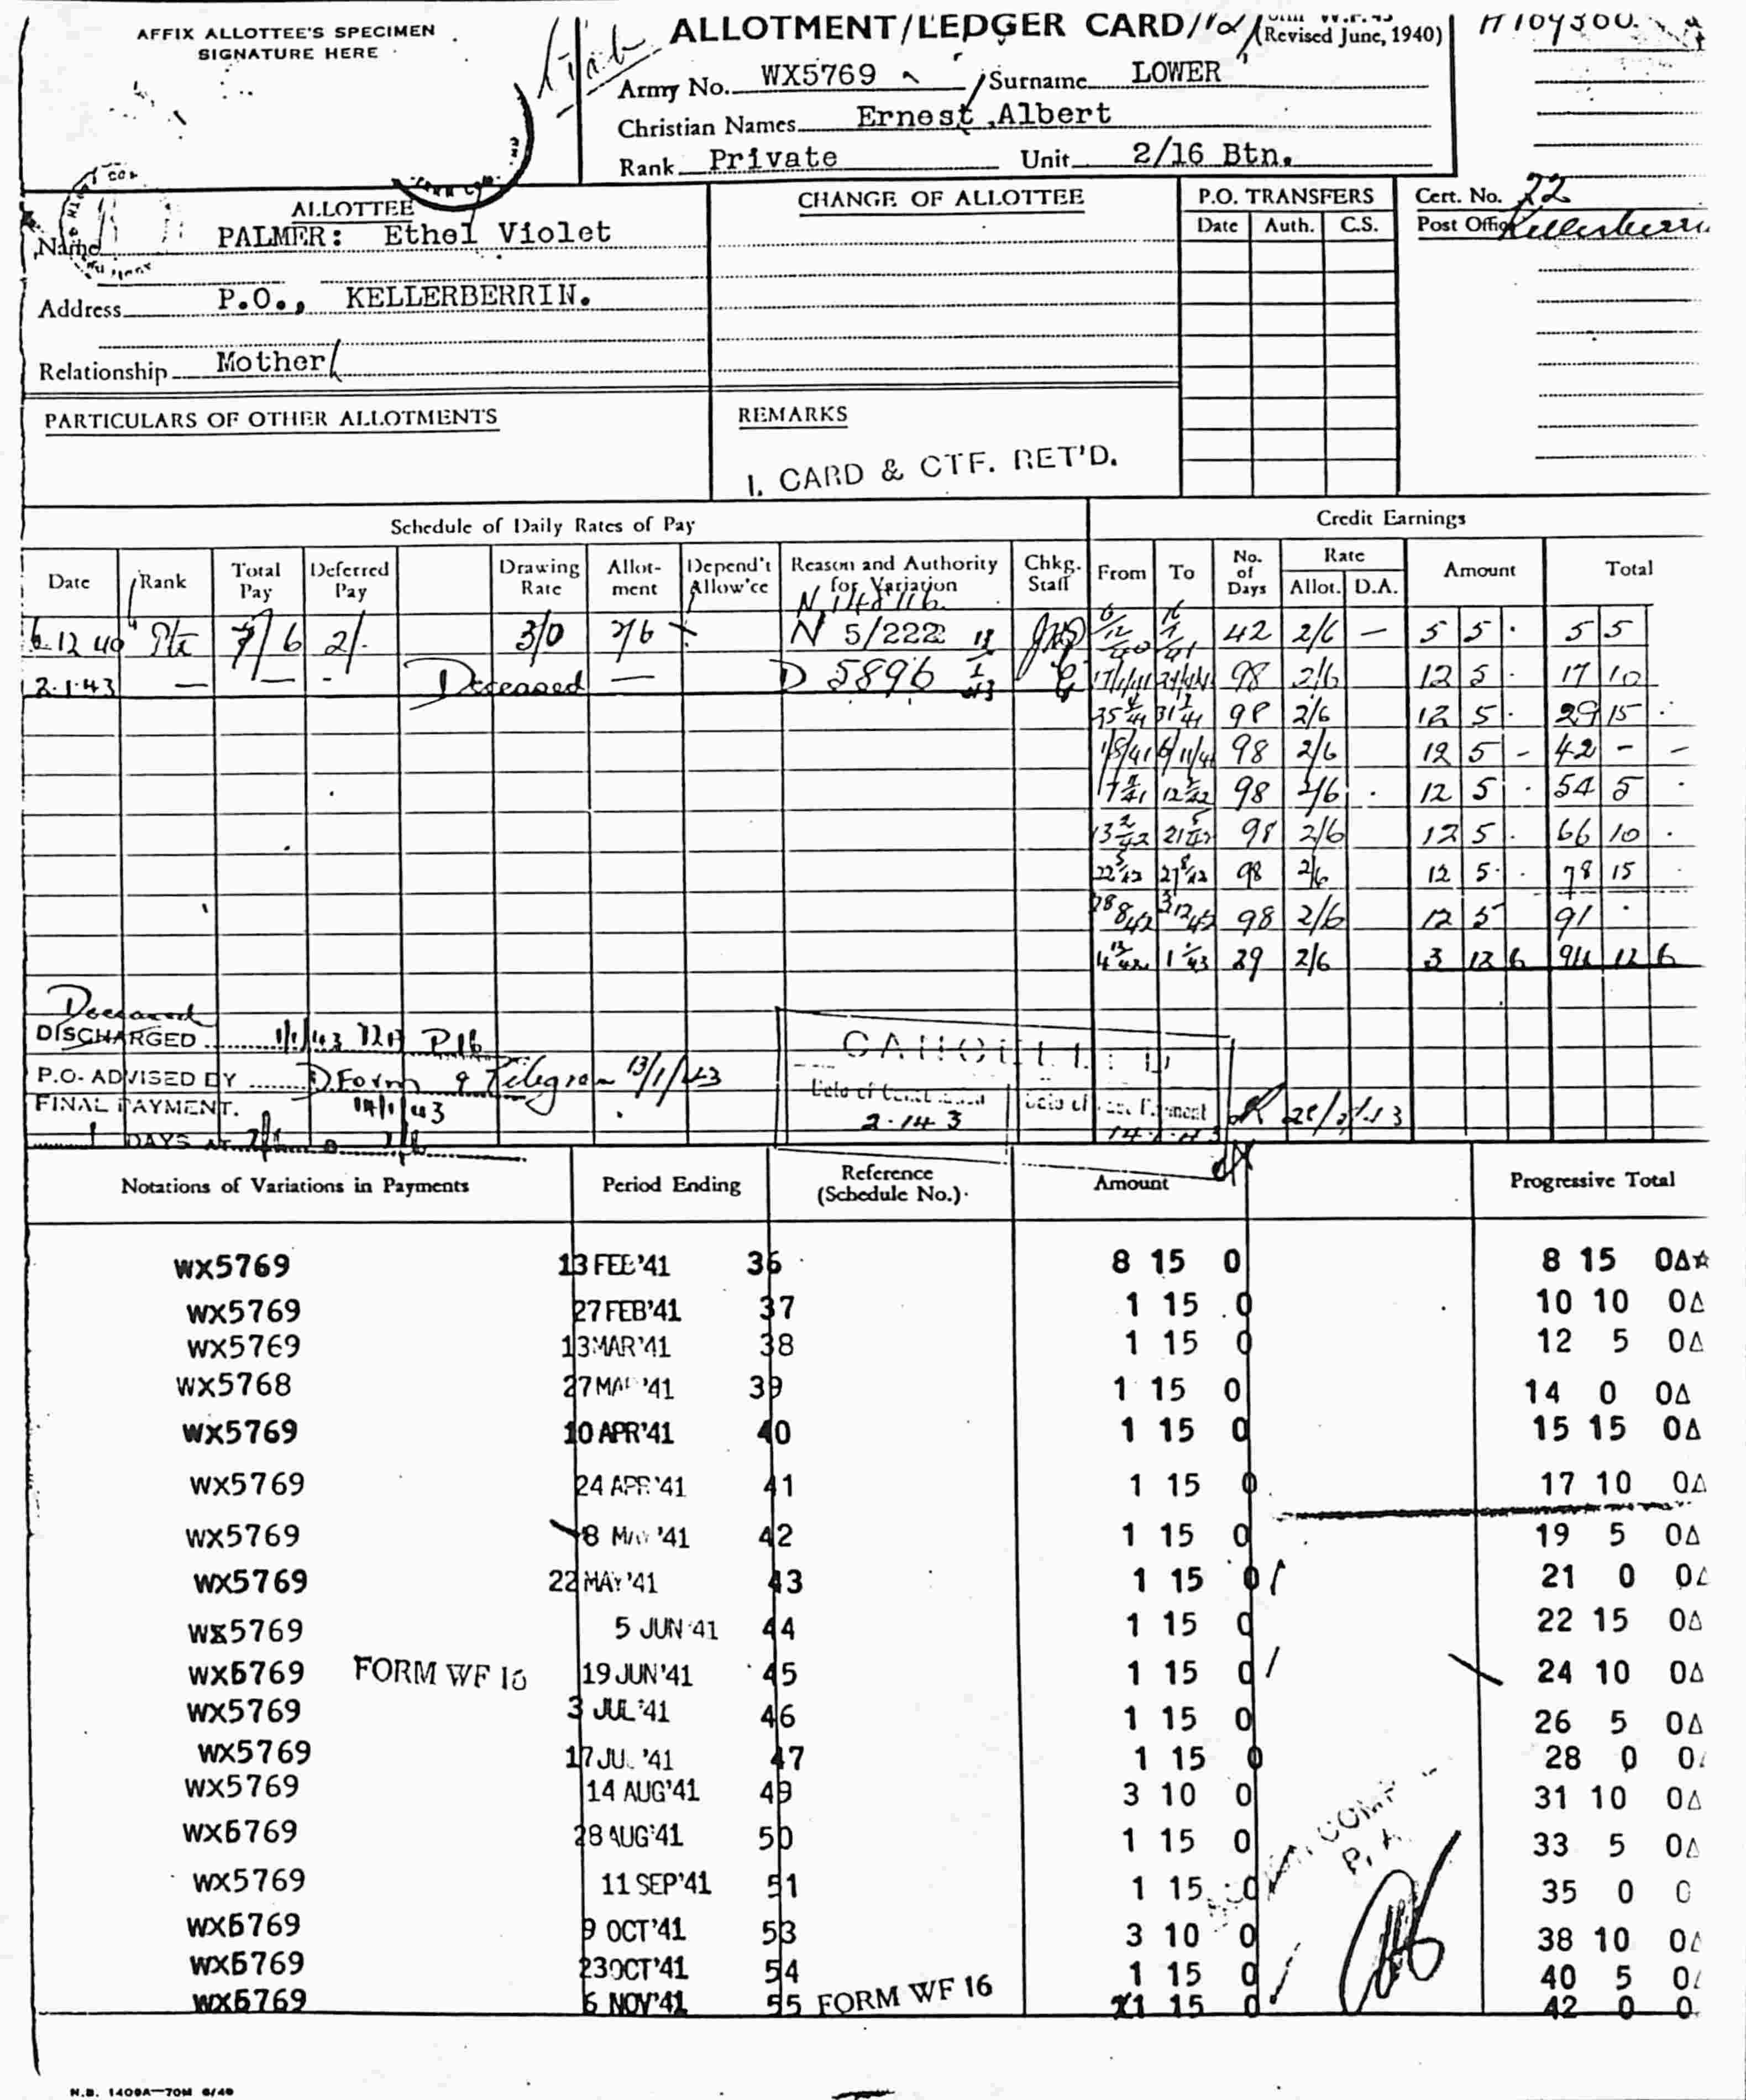 AFFIX ALLOTTEE'S SPECIMEN
SIGNATURE HERE
ALLOTMENT/LEDGER CARD
(Revised June, 1940)
Army No. WX5769 Surname LOWER
Christian Names Ernest Albert
Rank Private Unit 2/16 Btn.
ALLOTTEE
Name PALMER: Ethel Violet
Address P.O., KELLERBERRIN.
Relationship Mother
CHANGE OF ALLOTTEE
P.O. TRANSFERS
Date Auth. C.S.
Cert. No. 22
Post Office Kellerberrin
PARTICULARS OF OTHER ALLOTMENTS
REMARKS
1. CARD & CTF. RET'D.
Schedule of Daily Rates of Pay Credit Earnings
Date Rank Total Pay Deferred Pay Drawing Rate Allot-ment Depend't Allow'ce Reason and Authority for Variation Chkg. Staff From To No. of Days Rate Allot. D.A. Amount Total
N 148116
6.12.40 Pte 7/6 2/- 3/0 2/6 N 5/222 6/12/40 16/1/41 42 2/6 — 5 5 . 5 5
2.1.43 — — - Deceased — D 5896 17/1/41 24/4/41 98 2/6 12 5 . 17 10
25 4/41 31 7/41 98 2/6 12 5 . 29 15 .
1/8/41 6/11/41 98 2/6 12 5 - 42 - -
7 11/41 12 2/42 98 2/6 . 12 5 . 54 5 .
13 2/42 21 5/42 98 2/6 12 5 . 66 10 .
22 5/42 27 8/42 98 2/6 12 5 . 78 15 .
28 8/42 3 12/42 98 2/6 12 5 91 .
4 12/42 1 1/43 29 2/6 3 12 6 94 12 6
Deceased
DISCHARGED 1/1/43
P.O. ADVISED BY D.Form & Telegram 13/1/43
FINAL PAYMENT. 14/1/43
1 DAYS AT 2/6 2/6
CANCELLED
2.1.43 14.1.43
Notations of Variations in Payments Period Ending Reference (Schedule No.) Amount Progressive Total
WX5769 13 FEB'41 36 8 15 0 8 15 0Δ☆
WX5769 27 FEB'41 37 1 15 0 10 10 0Δ
WX5769 13 MAR'41 38 1 15 0 12 5 0Δ
WX5768 27 MAR'41 39 1 15 0 14 0 0Δ
WX5769 10 APR'41 40 1 15 0 15 15 0Δ
WX5769 24 APR'41 41 1 15 0 17 10 0Δ
WX5769 8 MAY'41 42 1 15 0 19 5 0Δ
WX5769 22 MAY'41 43 1 15 0 21 0 0Δ
WX5769 5 JUN'41 44 1 15 0 22 15 0Δ
WX5769 FORM WF 16 19 JUN'41 45 1 15 0 24 10 0Δ
WX5769 3 JUL'41 46 1 15 0 26 5 0Δ
WX5769 17 JUL'41 47 1 15 0 28 0 0
WX5769 14 AUG'41 49 3 10 0 31 10 0Δ
WX5769 28 AUG'41 50 1 15 0 33 5 0Δ
WX5769 11 SEP'41 51 1 15 0 35 0 0
WX5769 9 OCT'41 53 3 10 0 38 10 0Δ
WX5769 23 OCT'41 54 1 15 0 40 5 0
WX5769 6 NOV'41 55 FORM WF 16 1 15 0 42 0 0
N.B. 1409A—70M 6/40